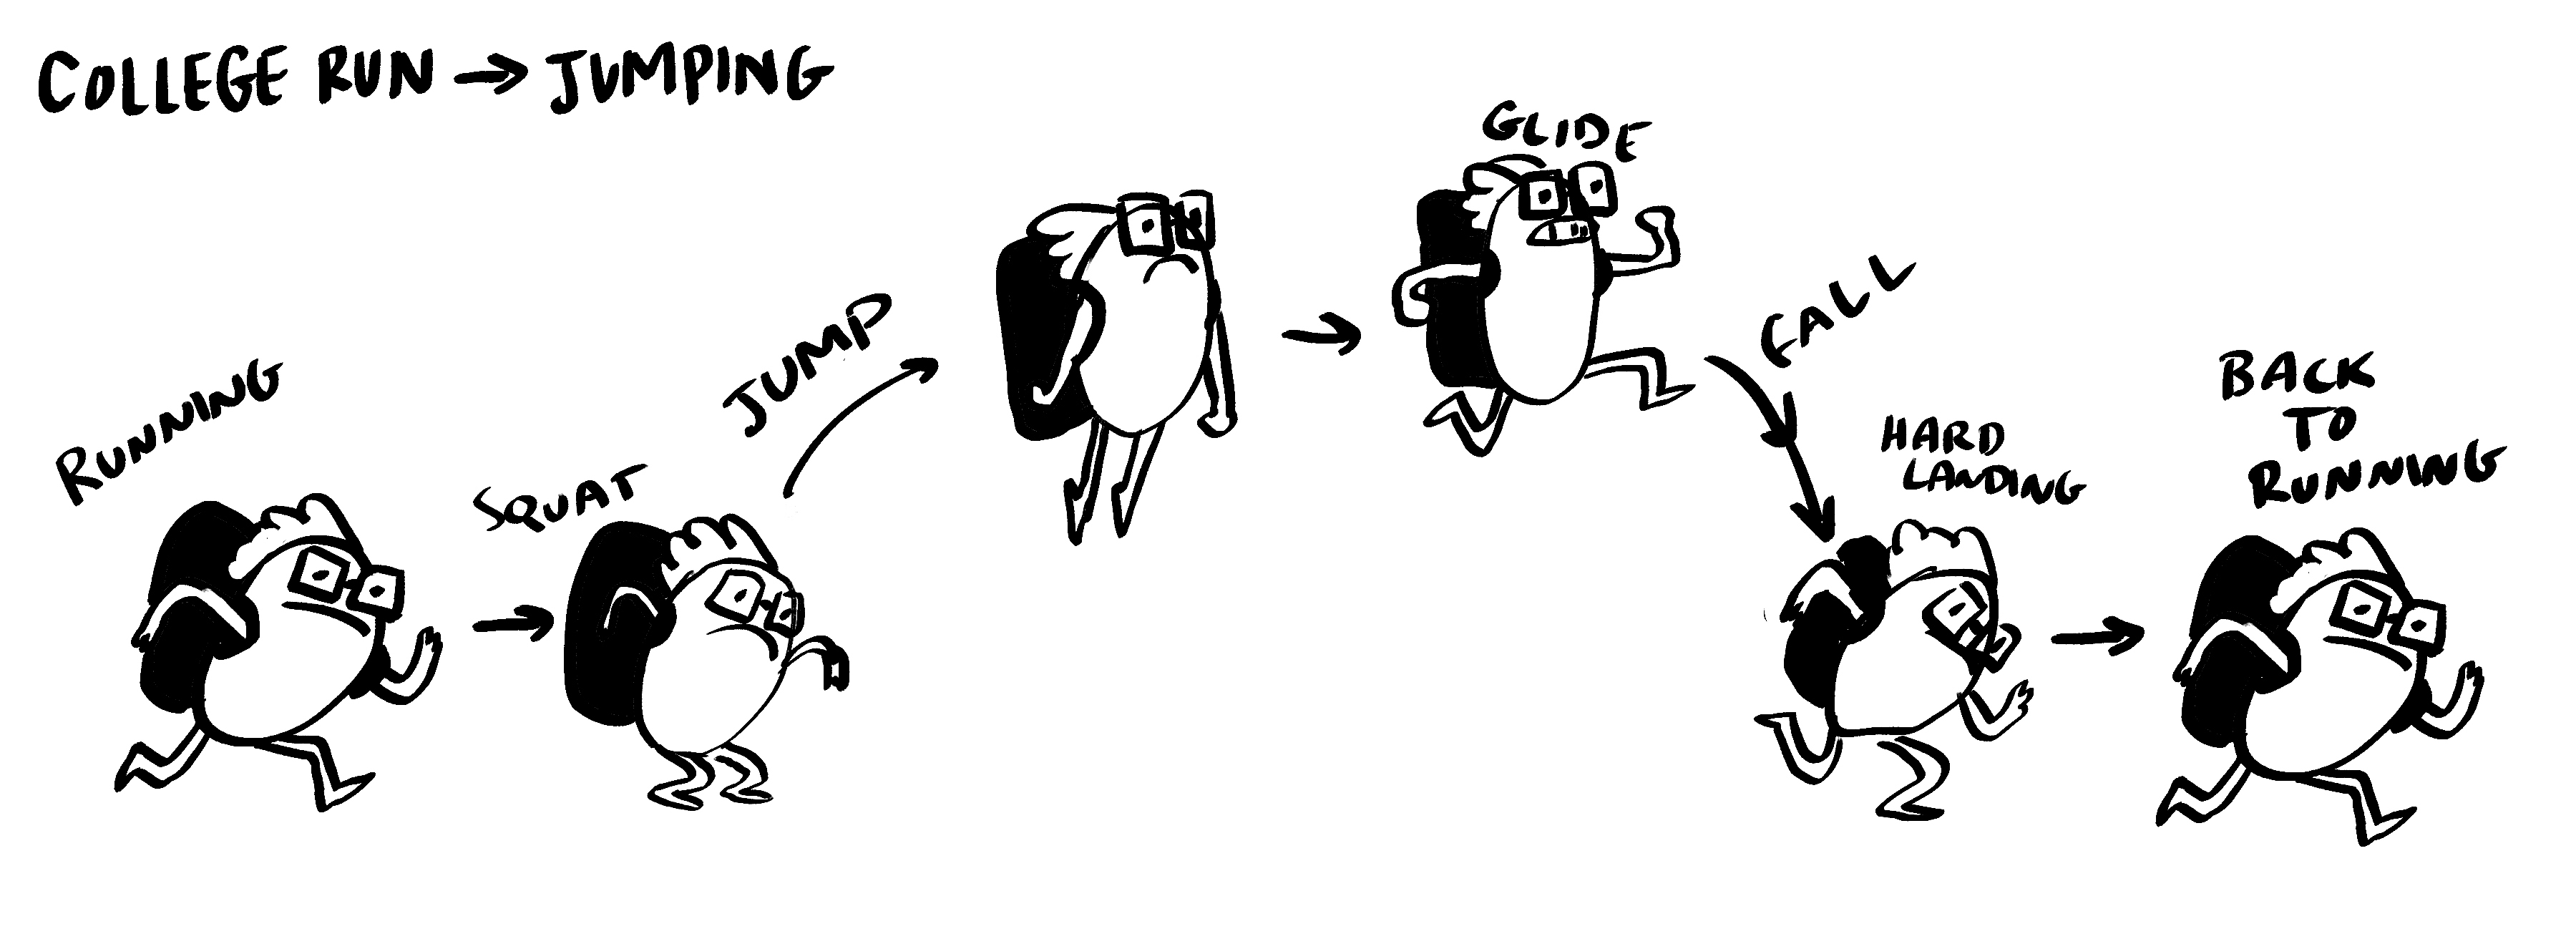 COLLEGE RUN → JUMPING
RUNNING
SQUAT
JUMP
GLIDE
FALL
HARD
LANDING
BACK
TO
RUNNING